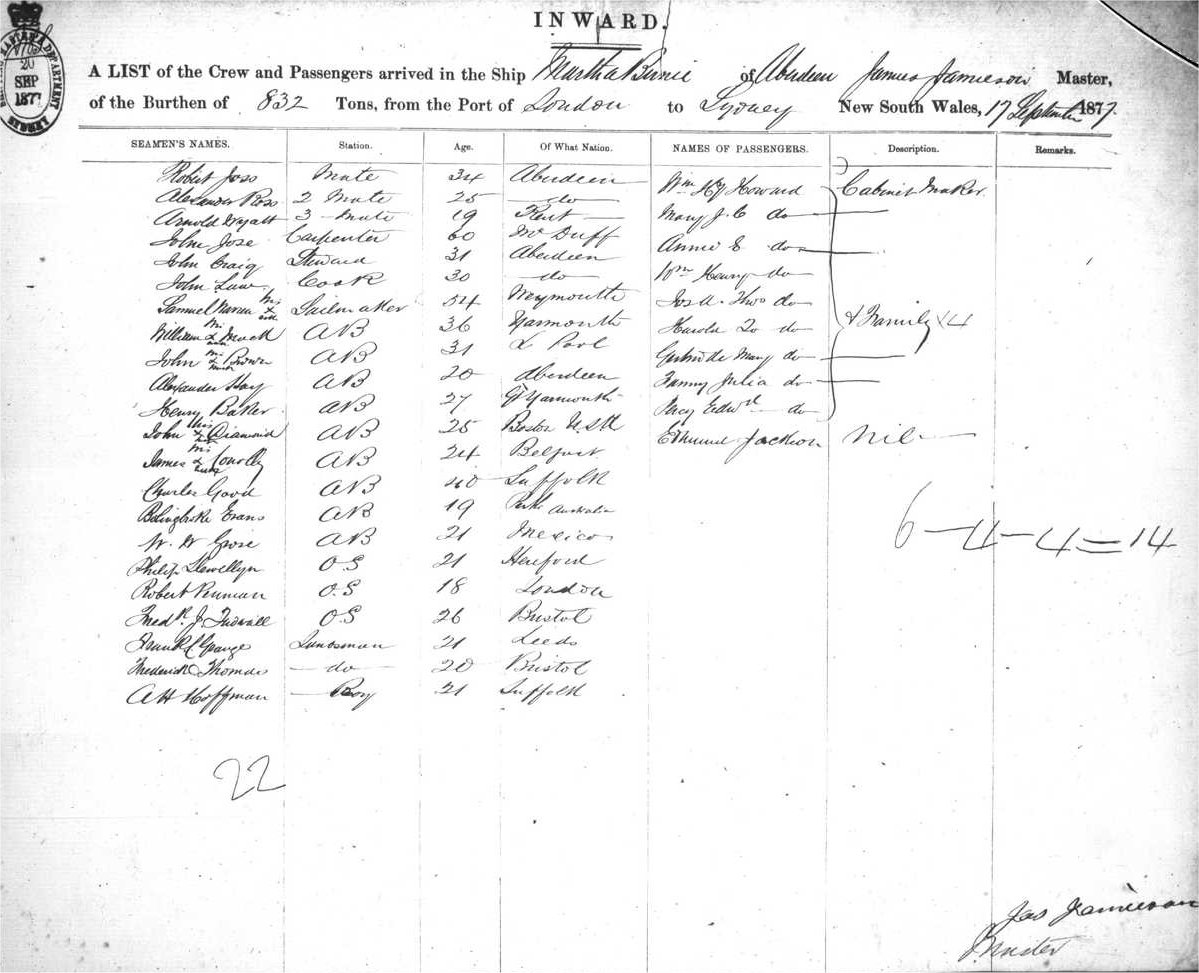 INWARD.
MARINE DEPARTMENT
20
SEP
1877
SYDNEY
A LIST of the Crew and Passengers arrived in the Ship Martha Birnie of Aberdeen James Jamieson Master,
of the Burthen of 832 Tons, from the Port of London to Sydney New South Wales, 17 September 1877.
SEAMEN'S NAMES. Station. Age. Of What Nation. NAMES OF PASSENGERS. Description. Remarks.
Robert Joss Mate 34 Aberdeen Wm Hy Howard Cabinet Maker
Alexander Ross 2 Mate 25 — do — Mary J. C do —
Arnold Wyatt 3 — Mate 19 Kent — Annie E do —
John Jose Carpenter 60 McDuff Wm Henry do
John Craig Steward 31 Aberdeen Josh Thos do
John Law Cook 30 — do — Harold Jo do & Family 4
Samuel Sailmaker 54 Weymouth Gertrude Mary do —
William Mack AB 36 Yarmouth Fanny Julia do —
John Brown AB 31 L Pool Percy Edwd — do
Alexander Hay AB 20 Aberdeen Edmund Jackson Nil —
Henry Baker AB 27 Gt Yarmouth
John Diamond AB 25 Boston U. St
James Conolly AB 24 Belfast
Charles Good AB 40 Suffolk
Bolingbroke Evans AB 19 Australia
W. W Grose AB 21 Mexico
Philip Llewellyn O.S 21 Hereford
Robert Penman O.S 18 London
Fredk J. Tudball O.S 26 Bristol
Frank L George Landsman 21 Leeds
Frederick Thomas — do — 20 Bristol
A H Hoffman — Boy 21 Suffolk
6 — 4 — 4 = 14
22
Jas Jamieson
Master